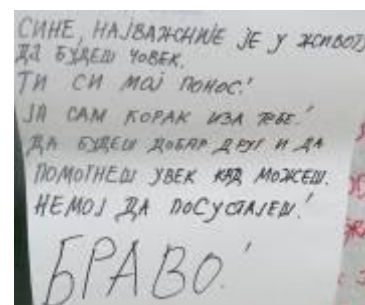 СИНЕ, НАЈВАЖНИЈЕ ЈЕ У ЖИВОТУ
ДА БУДЕШ ЧОВЕК.
ТИ СИ МОЈ ПОНОС!
ЈА САМ КОРАК ИЗА ТЕБЕ!
ДА БУДЕШ ДОБАР ДРУГ И ДА
ПОМОГНЕШ УВЕК КАД МОЖЕШ.
НЕМОЈ ДА ПОСУСТАЈЕШ!
БРАВО!